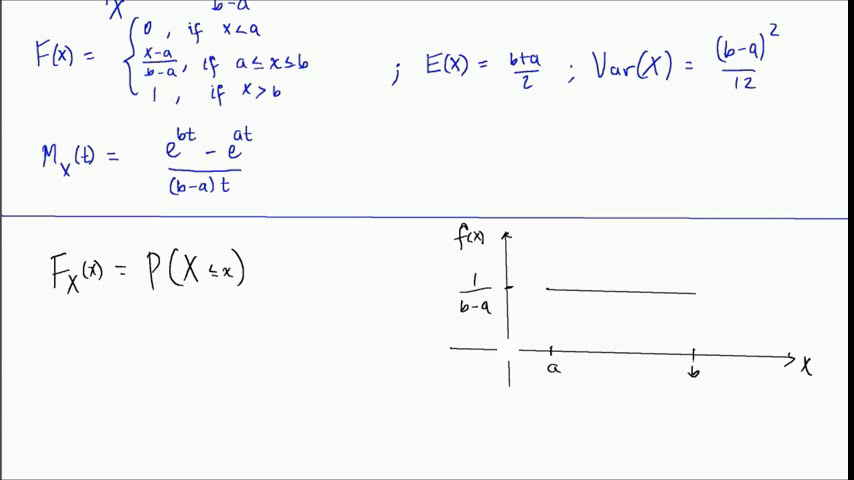 X b-a
F(x) = { 0 , if x<a
x-a/b-a , if a≤x≤b
1 , if x>b
; E(X) = b+a/2 ; Var(X) = (b-a)²/12
M_X(t) = e^bt - e^at / (b-a)t
F_X(x) = P(X≤x)
f(x)
1/b-a
a b x